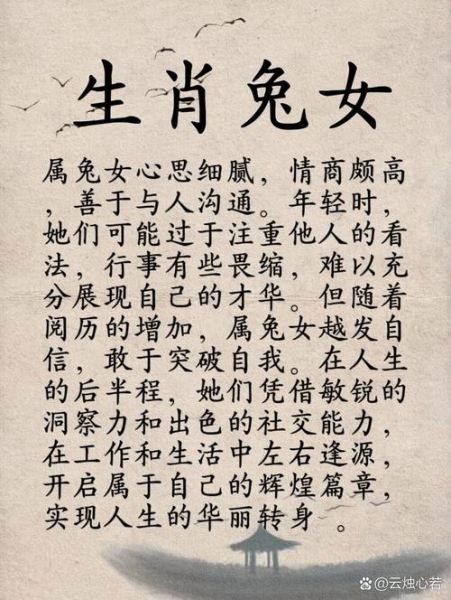 生肖兔女
属兔女心思细腻，情商颇高
，善于与人沟通。年轻时，
她们可能过于注重他人的看
法，行事有些畏缩，难以充
分展现自己的才华。但随着
阅历的增加，属兔女越发自
信，敢于突破自我。在人生
的后半程，她们凭借敏锐的
洞察力和出色的社交能力，
在工作和生活中左右逢源，
开启属于自己的辉煌篇章，
实现人生的华丽转身 。
@云烛心若